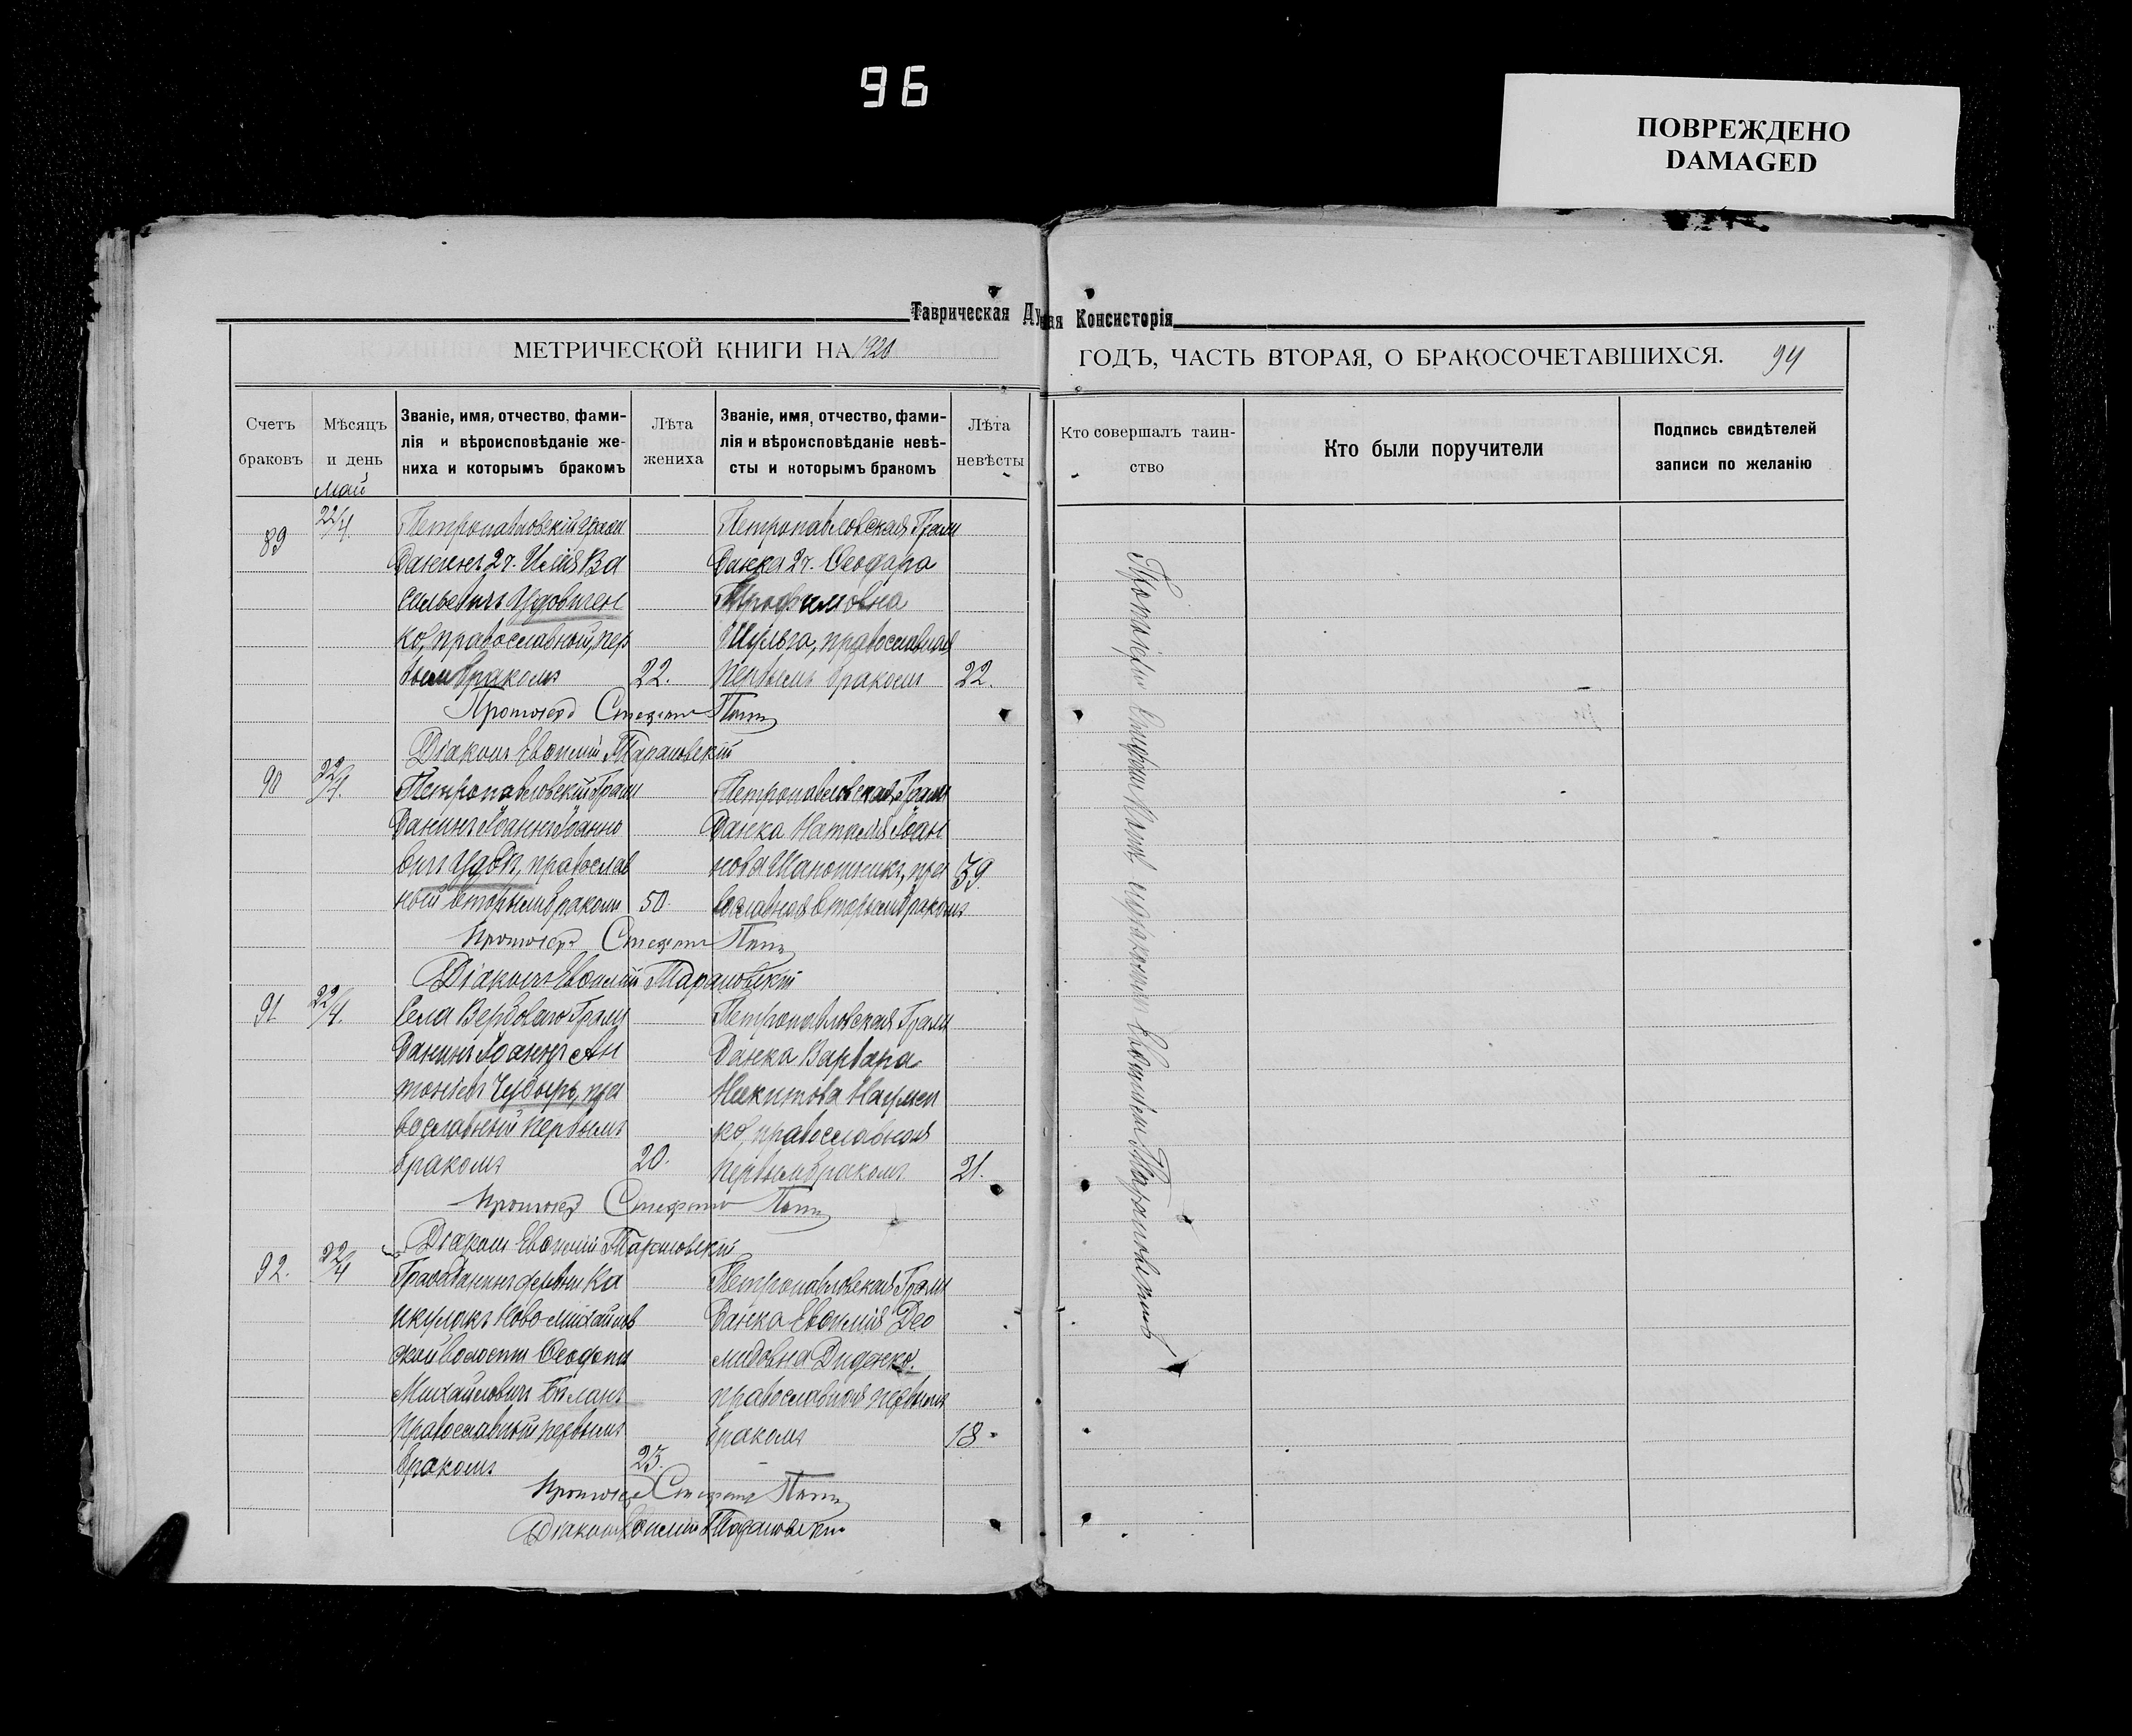 96
ПОВРЕЖДЕНО
DAMAGED
Таврическая Ду ная Консисторія
МЕТРИЧЕСКОЙ КНИГИ НА 1920
ГОДЪ, ЧАСТЬ ВТОРАЯ, О БРАКОСОЧЕТАВШИХСЯ.
94
Счетъ браковъ
Мѣсяцъ и день
Званіе, имя, отчество, фами-
лія и вѣроисповѣданіе же-
ниха и которымъ бракомъ
Лѣта жениха
Званіе, имя, отчество, фами-
лія и вѣроисповѣданіе невѣ-
сты и которымъ бракомъ
Лѣта невѣсты
Кто совершалъ таин-
ство
Кто были поручители
Подпись свидѣтелей
записи по желанію
Май
89
22/4.
Петропавловскій Граж
данинъ 2 ч. Илія Ва
сильевичъ Удовичен
ко, православный, пер
вымъ бракомъ
22.
Петропавловская Граж
данка 2 ч. Ѳеодора
Трофимовна
Шульга, православная
первымъ бракомъ
22.
Протоіер Стефанъ Попъ
Діаконъ Евѳимій Тарановскій
90
22/4.
Петропавловскій Граж
данинъ Іоаннъ Іоанно
вичъ Удодъ, православ
ный вторымъ бракомъ
50
Петропавловская Граж
данка Наталія Іоан
нова Шапошникъ, пра
вославная вторымъ бракомъ
39.
Протоіер Стефанъ Попъ
Діаконъ Евѳимій Тарановскій
91
22/4.
Села Вербоваго Граж
данинъ Іоаннъ Ан
тоніевъ Чубырь, пра
вославный первымъ
бракомъ
20.
Петропавловская Граж
данка Варвара
Никитова Наумен
ко, православная
первымъ бракомъ
21.
Протоіер Стефанъ Попъ
Діаконъ Евѳимій Тарановскій
92.
22/4
Гражданинъ деревни Ка
икулакъ Ново-Михайлов
ской волости Ѳеофанъ
Михайловичъ Биланъ
православный первымъ
бракомъ
25.
Петропавловская Граж
данка Евѳимія Део
мидовна Диденко.
православная первымъ
бракомъ
18
Протоіер Стефанъ Попъ
Діаконъ Евѳимій Тарановскій
Протоіерей Стефанъ Попъ съ діакономъ Евѳиміемъ Тарановскимъ